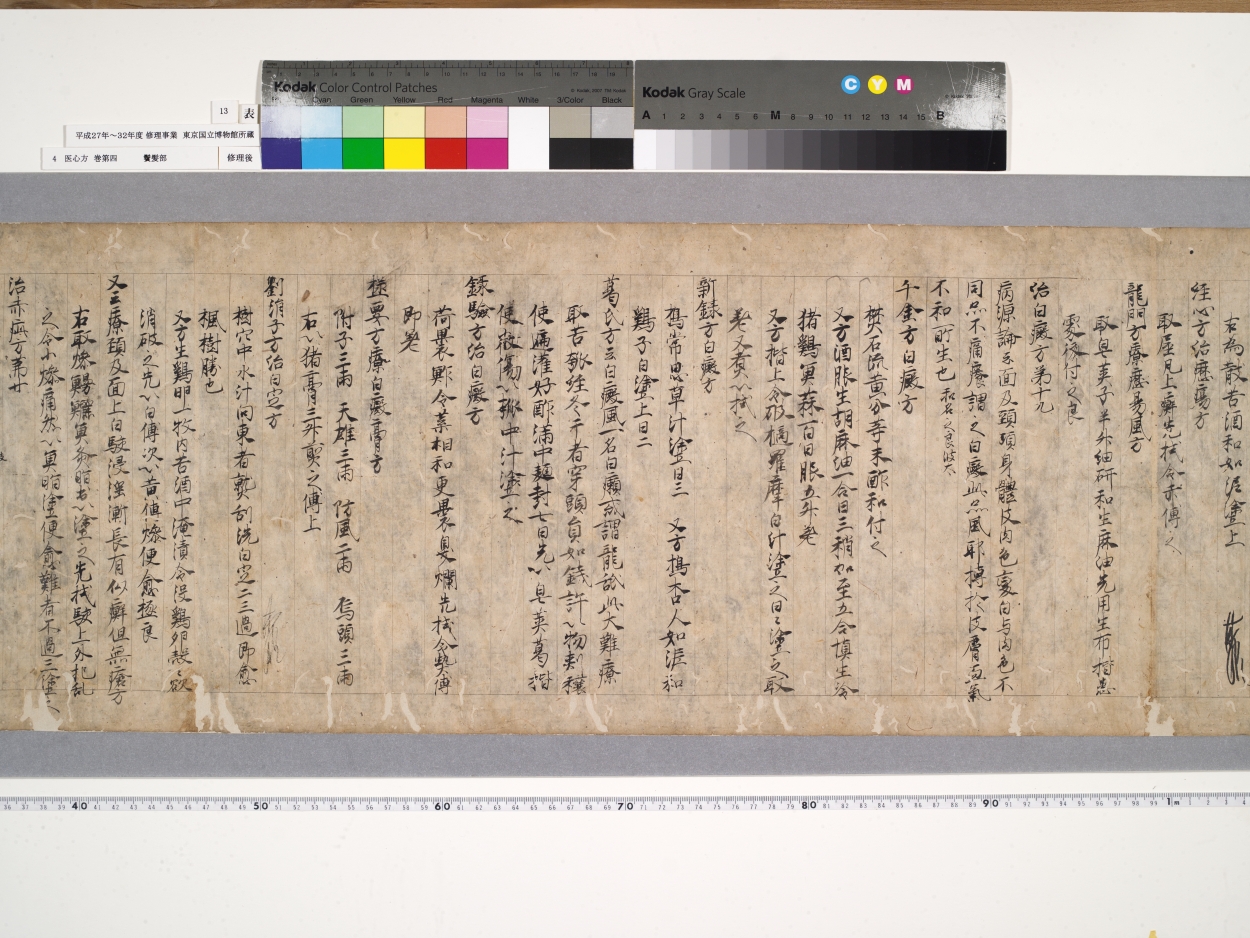 Kodak Color Control Patches
Cyan Green Yellow Red Magenta White 3/Color Black
Kodak Gray Scale
C Y M
A 1 2 3 4 5 6 M 8 9 10 11 12 13 14 15 B
13 表
平成27年〜32年度 修理事業 東京国立博物館所蔵
4 医心方 巻第四 鬢髪部 修理後
右為散苦酒和如泥塗上
経心方治癧瘍方
取屋瓦上癬先拭令赤傅之
龍門方療癧瘍風方
取皂莢子半升細研和生麻油先用生布揩患
処後付之良
治白癜方第十九
病源論云面及頸項身體皮肉色変白与肉色不
同亦不痛癢謂之白癜此亦風耶搏於皮膚血氣
不和所生也
千金方白癜方
樊石流黄分等末酢和付之
又方酒服生胡麻油一合日三稍加至五合慎生冷
猪鶏魚蒜百日服五斗差
又方揩上令破擿羅摩白汁塗之日日塗之取
差又煮以拭之
新録方白癜方
搗常思草汁塗日三 又方搗杏人如泥和
鶏子白塗上日二
葛氏方云白癜風一名白癩或謂龍舐此大難療
取苦瓠経冬干者穿頭員如錢許以物刺穰
使遍灌好酢満中麺封七日先以皂莢葛揩
使微傷以瓠中汁塗之
録験方治白癜方
荷裹鮓令葉相和更裹臭爛先拭令熱傅
即差
極要方療白癜膏方
附子三両 天雄三両 防風二両 烏頭三両
右以猪膏三升煎之傅上
劉涓子方治白定方
樹穴中水汁向東者熨刮洗白定二三過即愈
楓樹勝也
又方生鶏卵一枚内苦酒中淹漬令没鶏卵殻欲
消破之先以白傅次以黄傅燥便愈極良
又云療頸及面上白駮浸淫漸長有似癬但無瘡方
右取燥鰻鱺魚炙脂出以塗之先拭駮上外把刮
之令小燥痛然以魚脂塗便愈難者不過三塗之
治赤疵方第廿